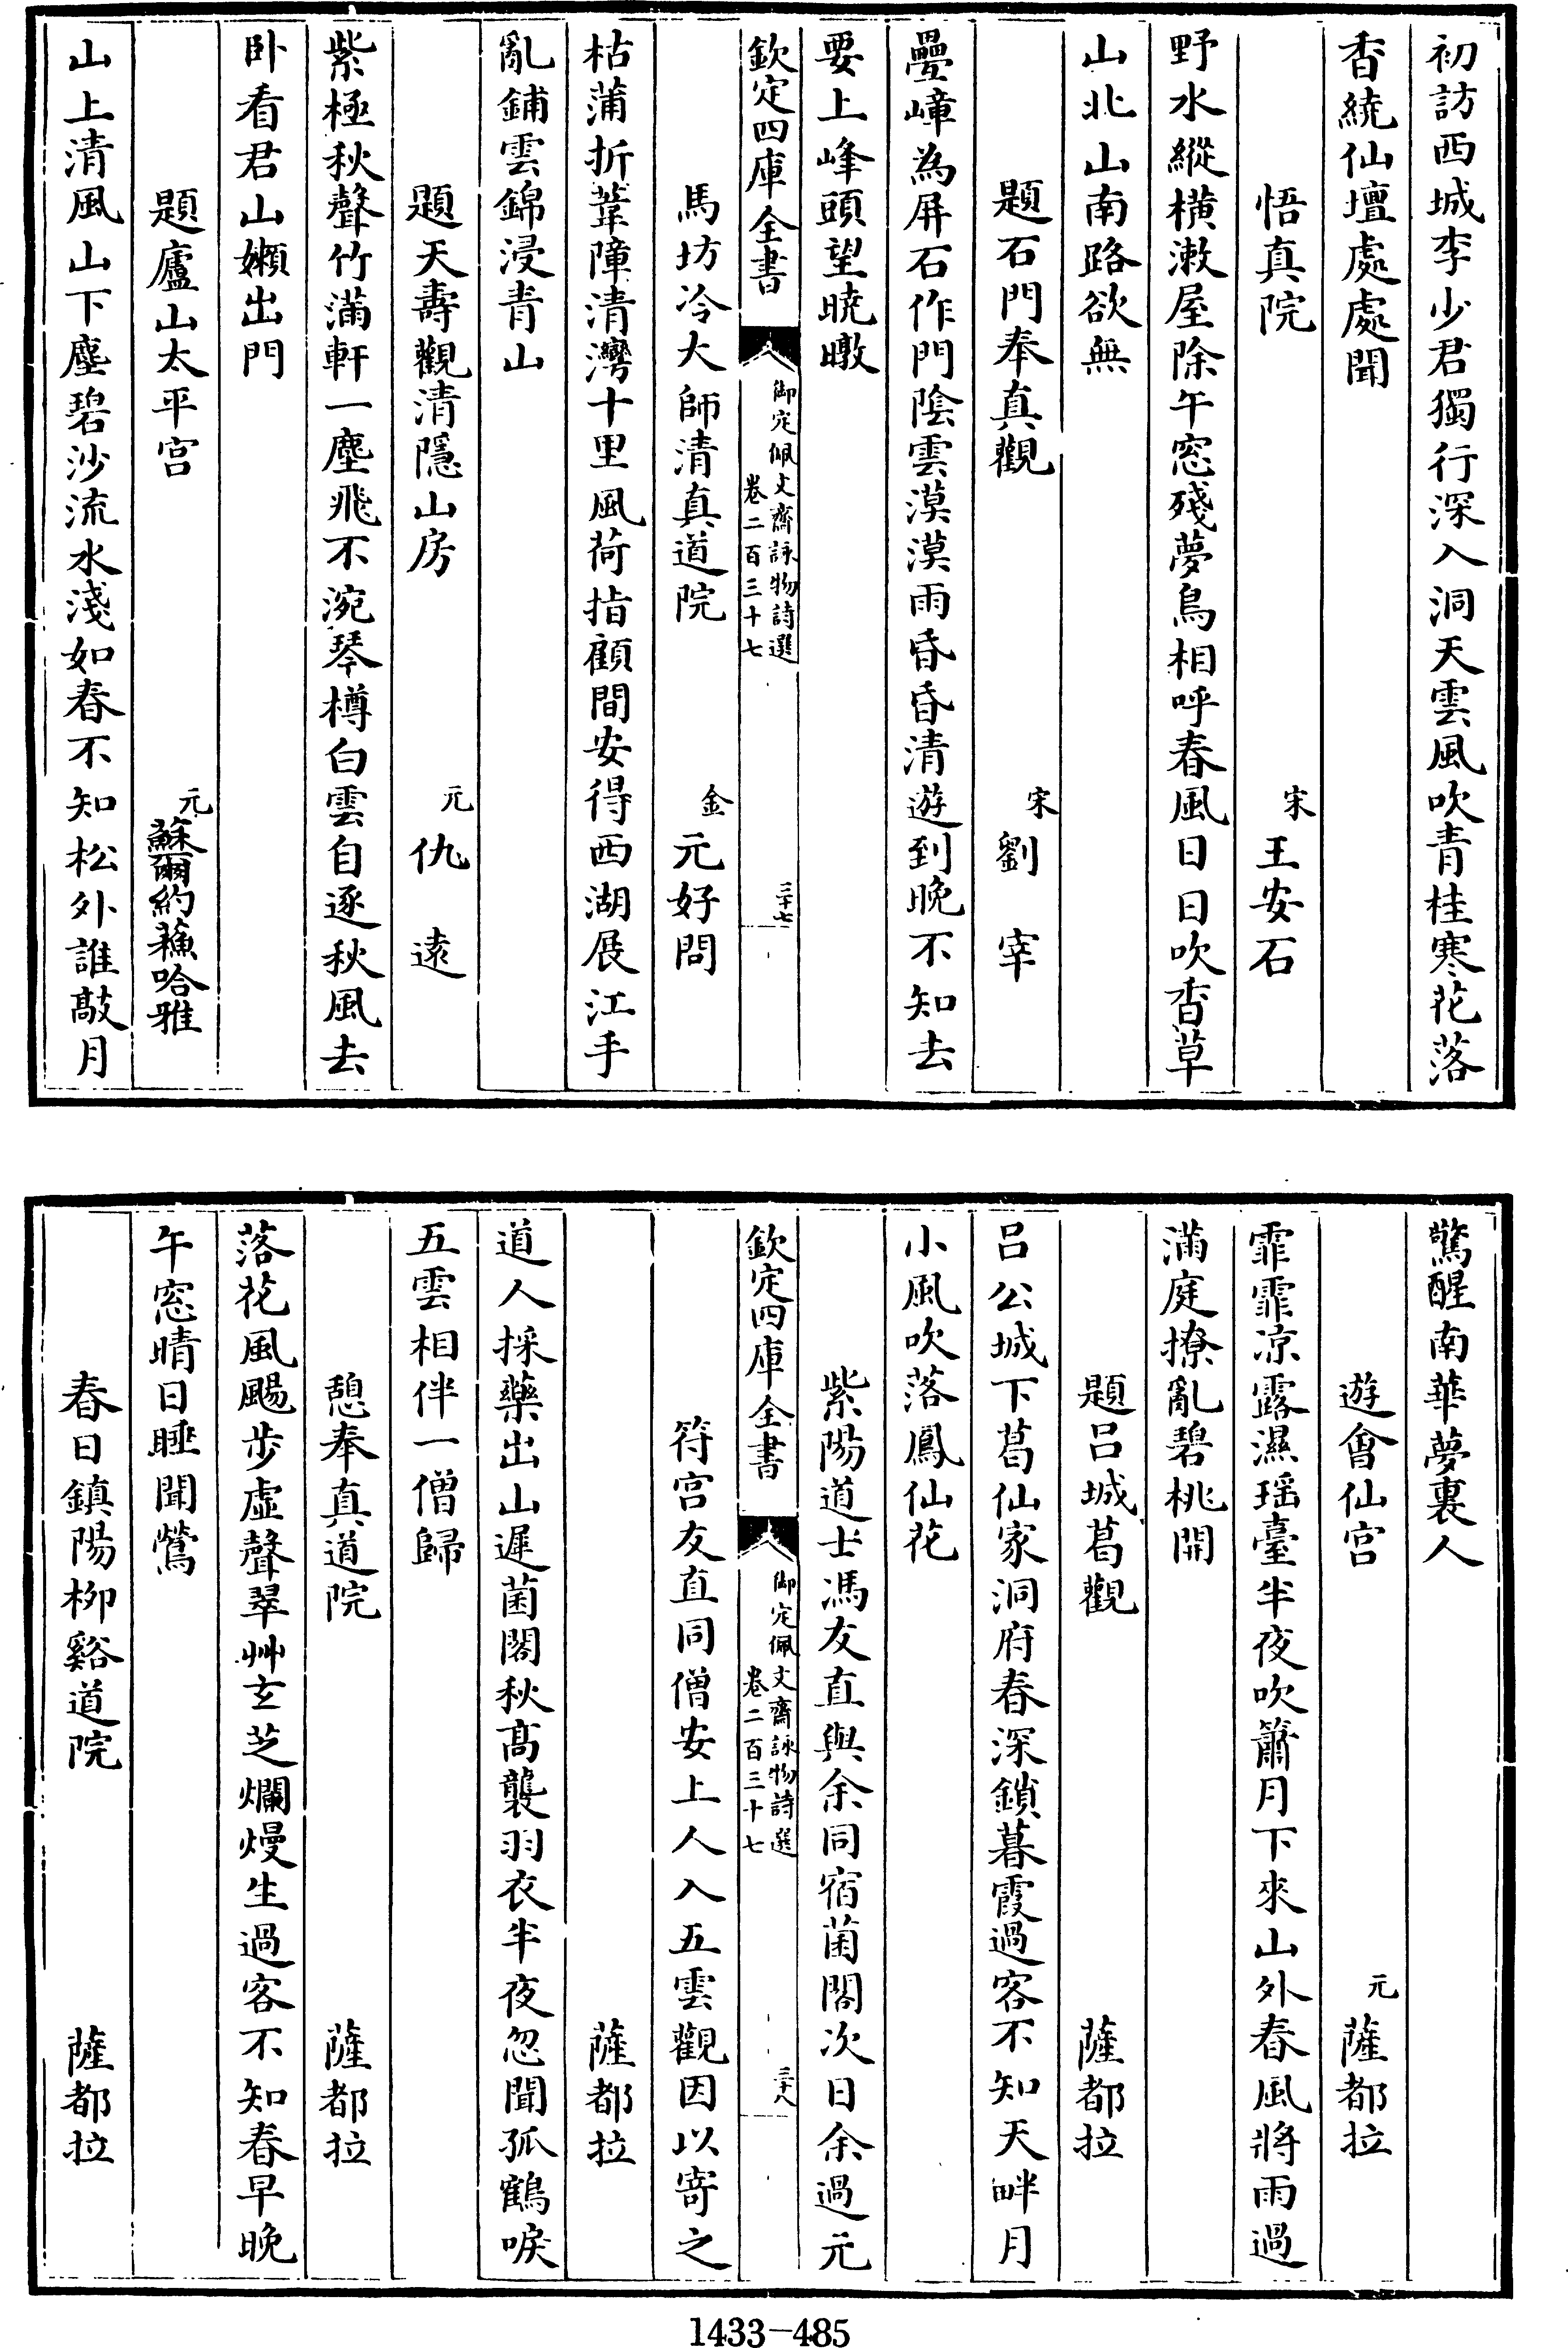 初訪西城李少君獨行深入洞天雲風吹青桂寒花落
香繞仙壇處處聞
悟真院
宋
王安石
野水縱橫漱屋除午窓殘夢鳥相呼春風日日吹香草
山北山南路欲無
題石門奉真觀
宋
劉宰
疊嶂為屏石作門陰雲漠漠雨昏昏清遊到晚不知去
要上峰頭望曉暾
欽定四庫全書
御定佩文齋詠物詩選
卷二百三十七
三十七
馬坊冷大師清真道院
金
元好問
枯蒲折葦障清灣十里風荷指顧間安得西湖展江手
亂鋪雲錦浸青山
題天壽觀清隱山房
元
仇遠
紫極秋聲竹滿軒一塵飛不涴琴樽白雲自逐秋風去
卧看君山嬾出門
題廬山太平宮
元
蘇爾約蘓哈雅
山上清風山下塵碧沙流水淺如春不知松外誰敲月
驚醒南華夢裏人
遊會仙宮
元
薩都拉
霏霏凉露濕瑶臺半夜吹簫月下來山外春風將雨過
滿庭撩亂碧桃開
題吕城葛觀
薩都拉
吕公城下葛仙家洞府春深鎖暮霞過客不知天畔月
小風吹落鳳仙花
紫陽道士馮友直與余同宿菌閣次日余過元
欽定四庫全書
御定佩文齋詠物詩選
卷二百三十七
三十八
符宮友直同僧安上人入五雲觀因以寄之
薩都拉
道人採藥出山遲菌閣秋髙襲羽衣半夜忽聞孤鶴唳
五雲相伴一僧歸
憩奉真道院
薩都拉
落花風颺步虛聲翠艸玄芝爛熳生過客不知春早晚
午窓晴日睡聞鶯
春日鎮陽柳谿道院
薩都拉
1433-485